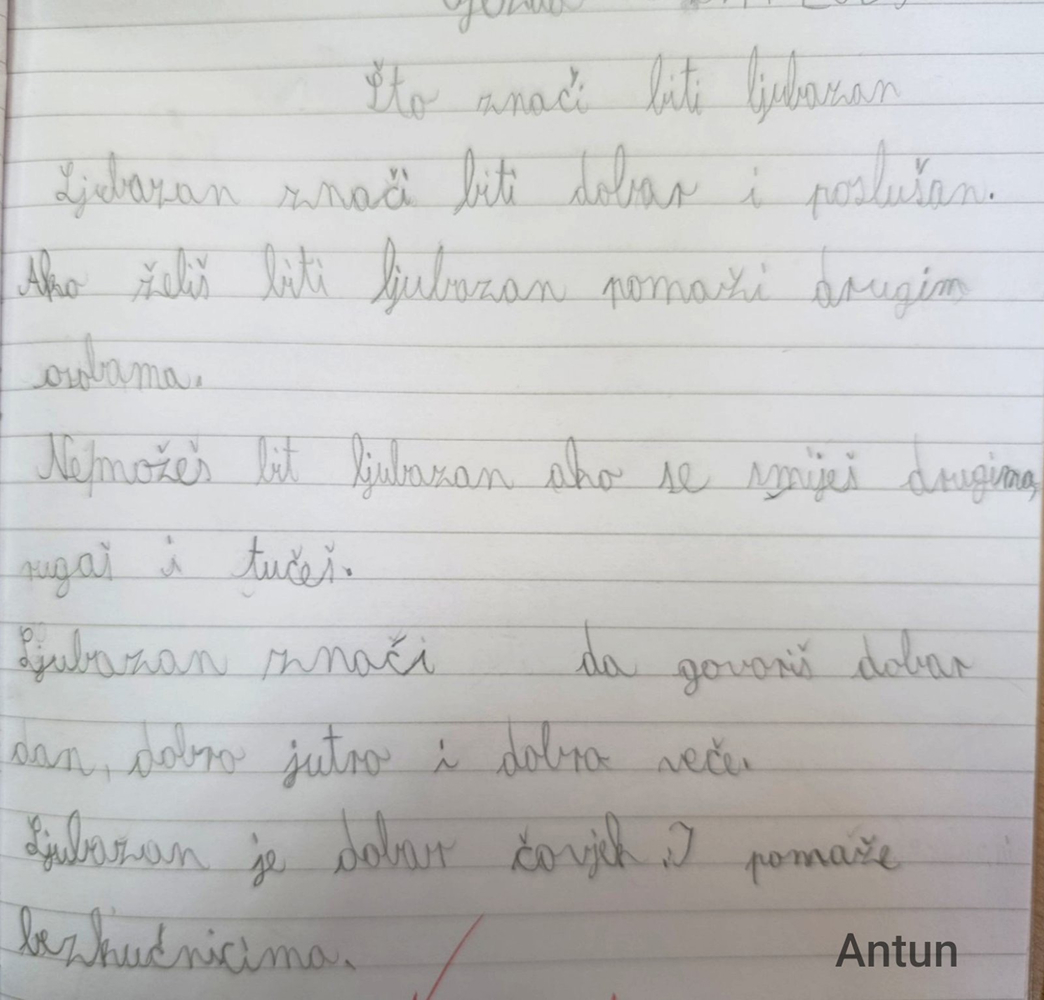 Što znači biti ljubazan
Ljubazan znači biti dobar i poslušan.
Ako želiš biti ljubazan pomaži drugim
osobama.
Nemožeš bit ljubazan ako se smiješ drugima,
rugaš i tučeš.
Ljubazan znači da govoriš dobar
dan, dobro jutro i dobra veče.
Ljubazan je dobar čovjek. I pomaže
bezkućnicima.
Antun